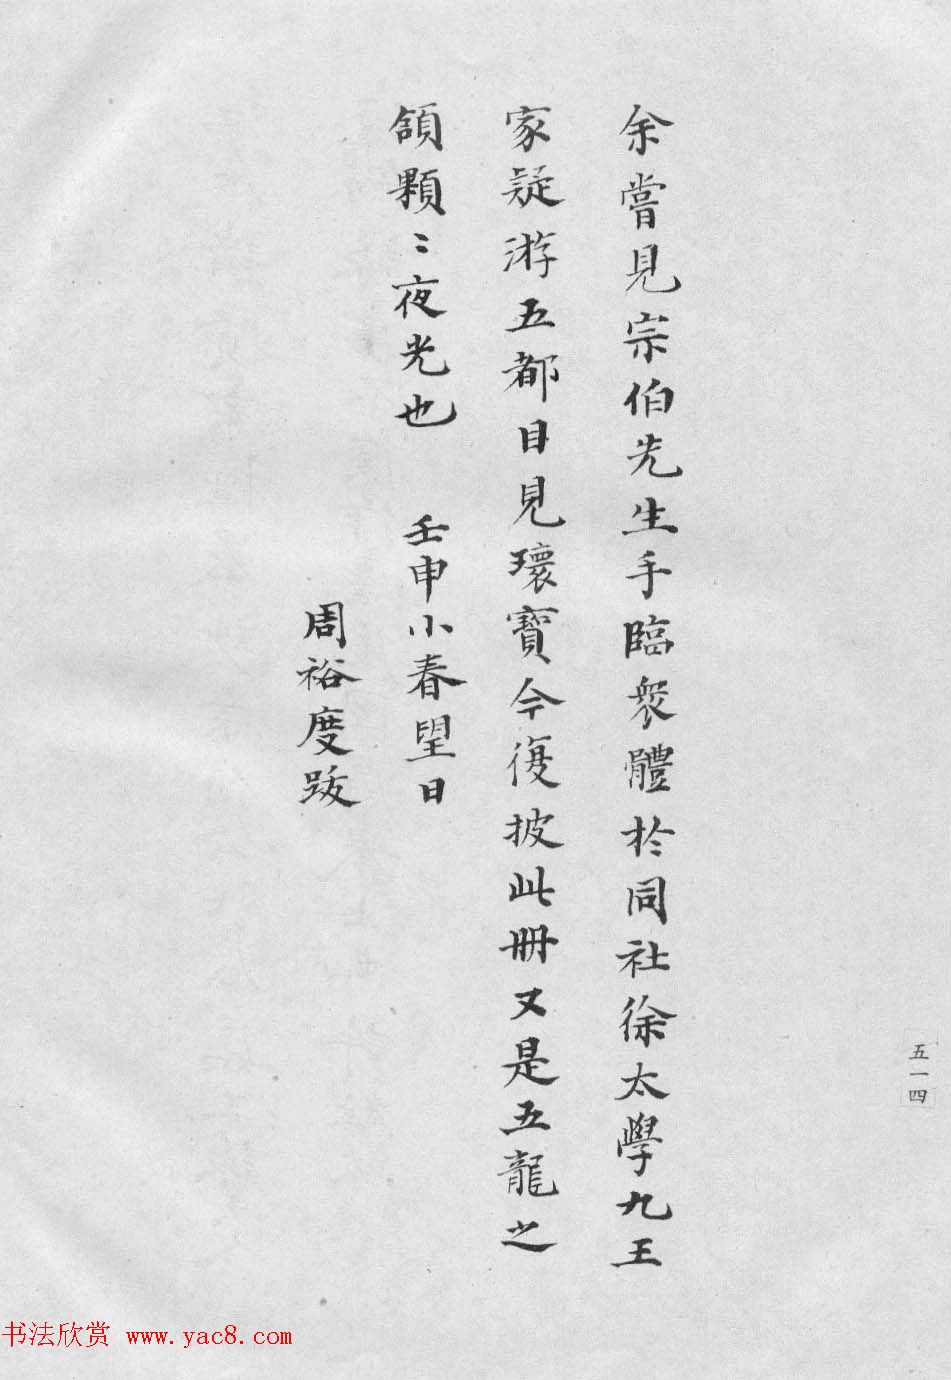 余嘗見宗伯先生手臨衆體於同社徐太學九王
家疑游五都目見瓌寶今復披此冊又是五龍之
頷顆〻夜光也　壬申小春望日
周裕度跋
五一四
书法欣赏 www.yac8.com